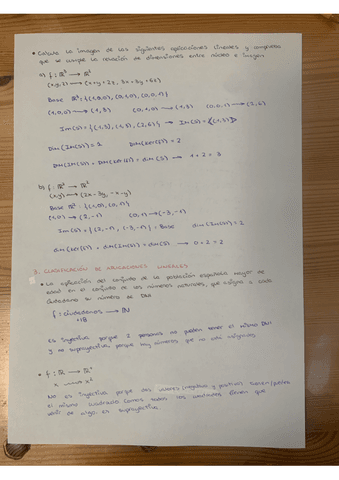 • Calcula la imagen de las siguientes aplicaciones lineales y comprueba
que se cumple la relación de dimensiones entre núcleo e imagen
a) f: ℝ³ → ℝ²
(x,y,z) → (x+y+2z, 3x+3y+6z)
Base ℝ³: {(1,0,0), (0,1,0), (0,0,1)}
(1,0,0) → (1,3) (0,1,0) → (1,3) (0,0,1) → (2,6)
Im(f) = {(1,3), (1,3), (2,6)} → Im(f) = <(1,3)>
Dim(Im(f)) = 1 Dim(Ker(f)) = 2
Dim(Im(f)) + Dim(Ker(f)) = dim → 1+2=3
b) f: ℝ² → ℝ²
(x,y) → (2x-3y, -x-y)
Base ℝ²: {(1,0), (0,1)}
(1,0) → (2,-1) (0,1) → (-3,-1)
Im(f) = {(2,-1), (-3,-1)} = Base dim(Im(f)) = 2
dim(Ker(f)) + dim(Im(f)) = dim → 0+2=2
3. CLASIFICACIÓN DE APLICACIONES LINEALES
• La aplicación del conjunto de la población española mayor de
edad en el conjunto de los números naturales, que asigna a cada
ciudadano su número de DNI
f: ciudadanos → ℕ
+18
Es inyectiva porque 2 personas no pueden tener el mismo DNI
y no suprayectiva, porque hay números que no están asignados.
• f: ℝ → ℝ⁺
x → x²
No es inyectiva porque dos valores (negativo y positivo) tienen
el mismo cuadrado. Como todos los cuadrados tienen que
venir de algo, es suprayectiva.